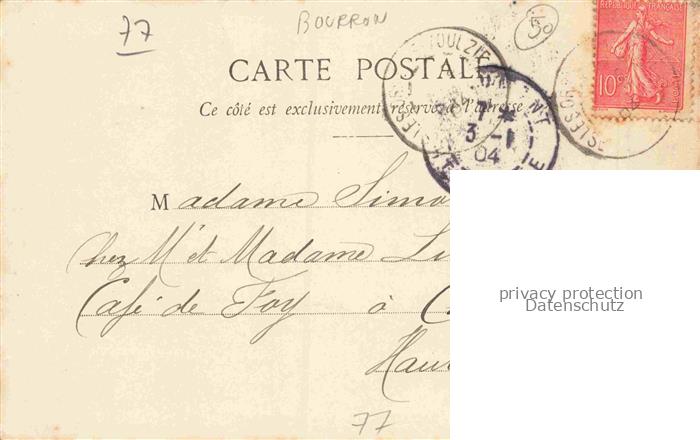 77
BOURRON
50
RÉPUBLIQUE FRANÇAISE
10c
CARTE POSTALE
Ce côté est exclusivement réservé à l'adresse
7
3-1
04
Madame Simo
chez Mr et Madame
Café de Foy à C
Hau
77
privacy protection
Datenschutz